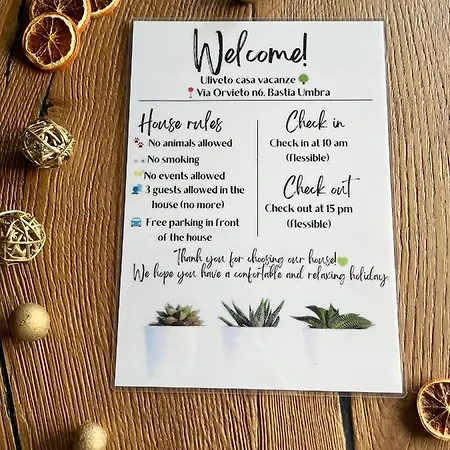 Welcome!
Uliveto casa vacanze
Via Orvieto n6, Bastia Umbra
House rules
No animals allowed
No smoking
No events allowed
3 guests allowed in the
house (no more)
Free parking in front
of the house
Check in
Check in at 10 am
(flessible)
Check out
Check out at 15 pm
(flessible)
Thank you for choosing our house!
We hope you have a confortable and relaxing holiday